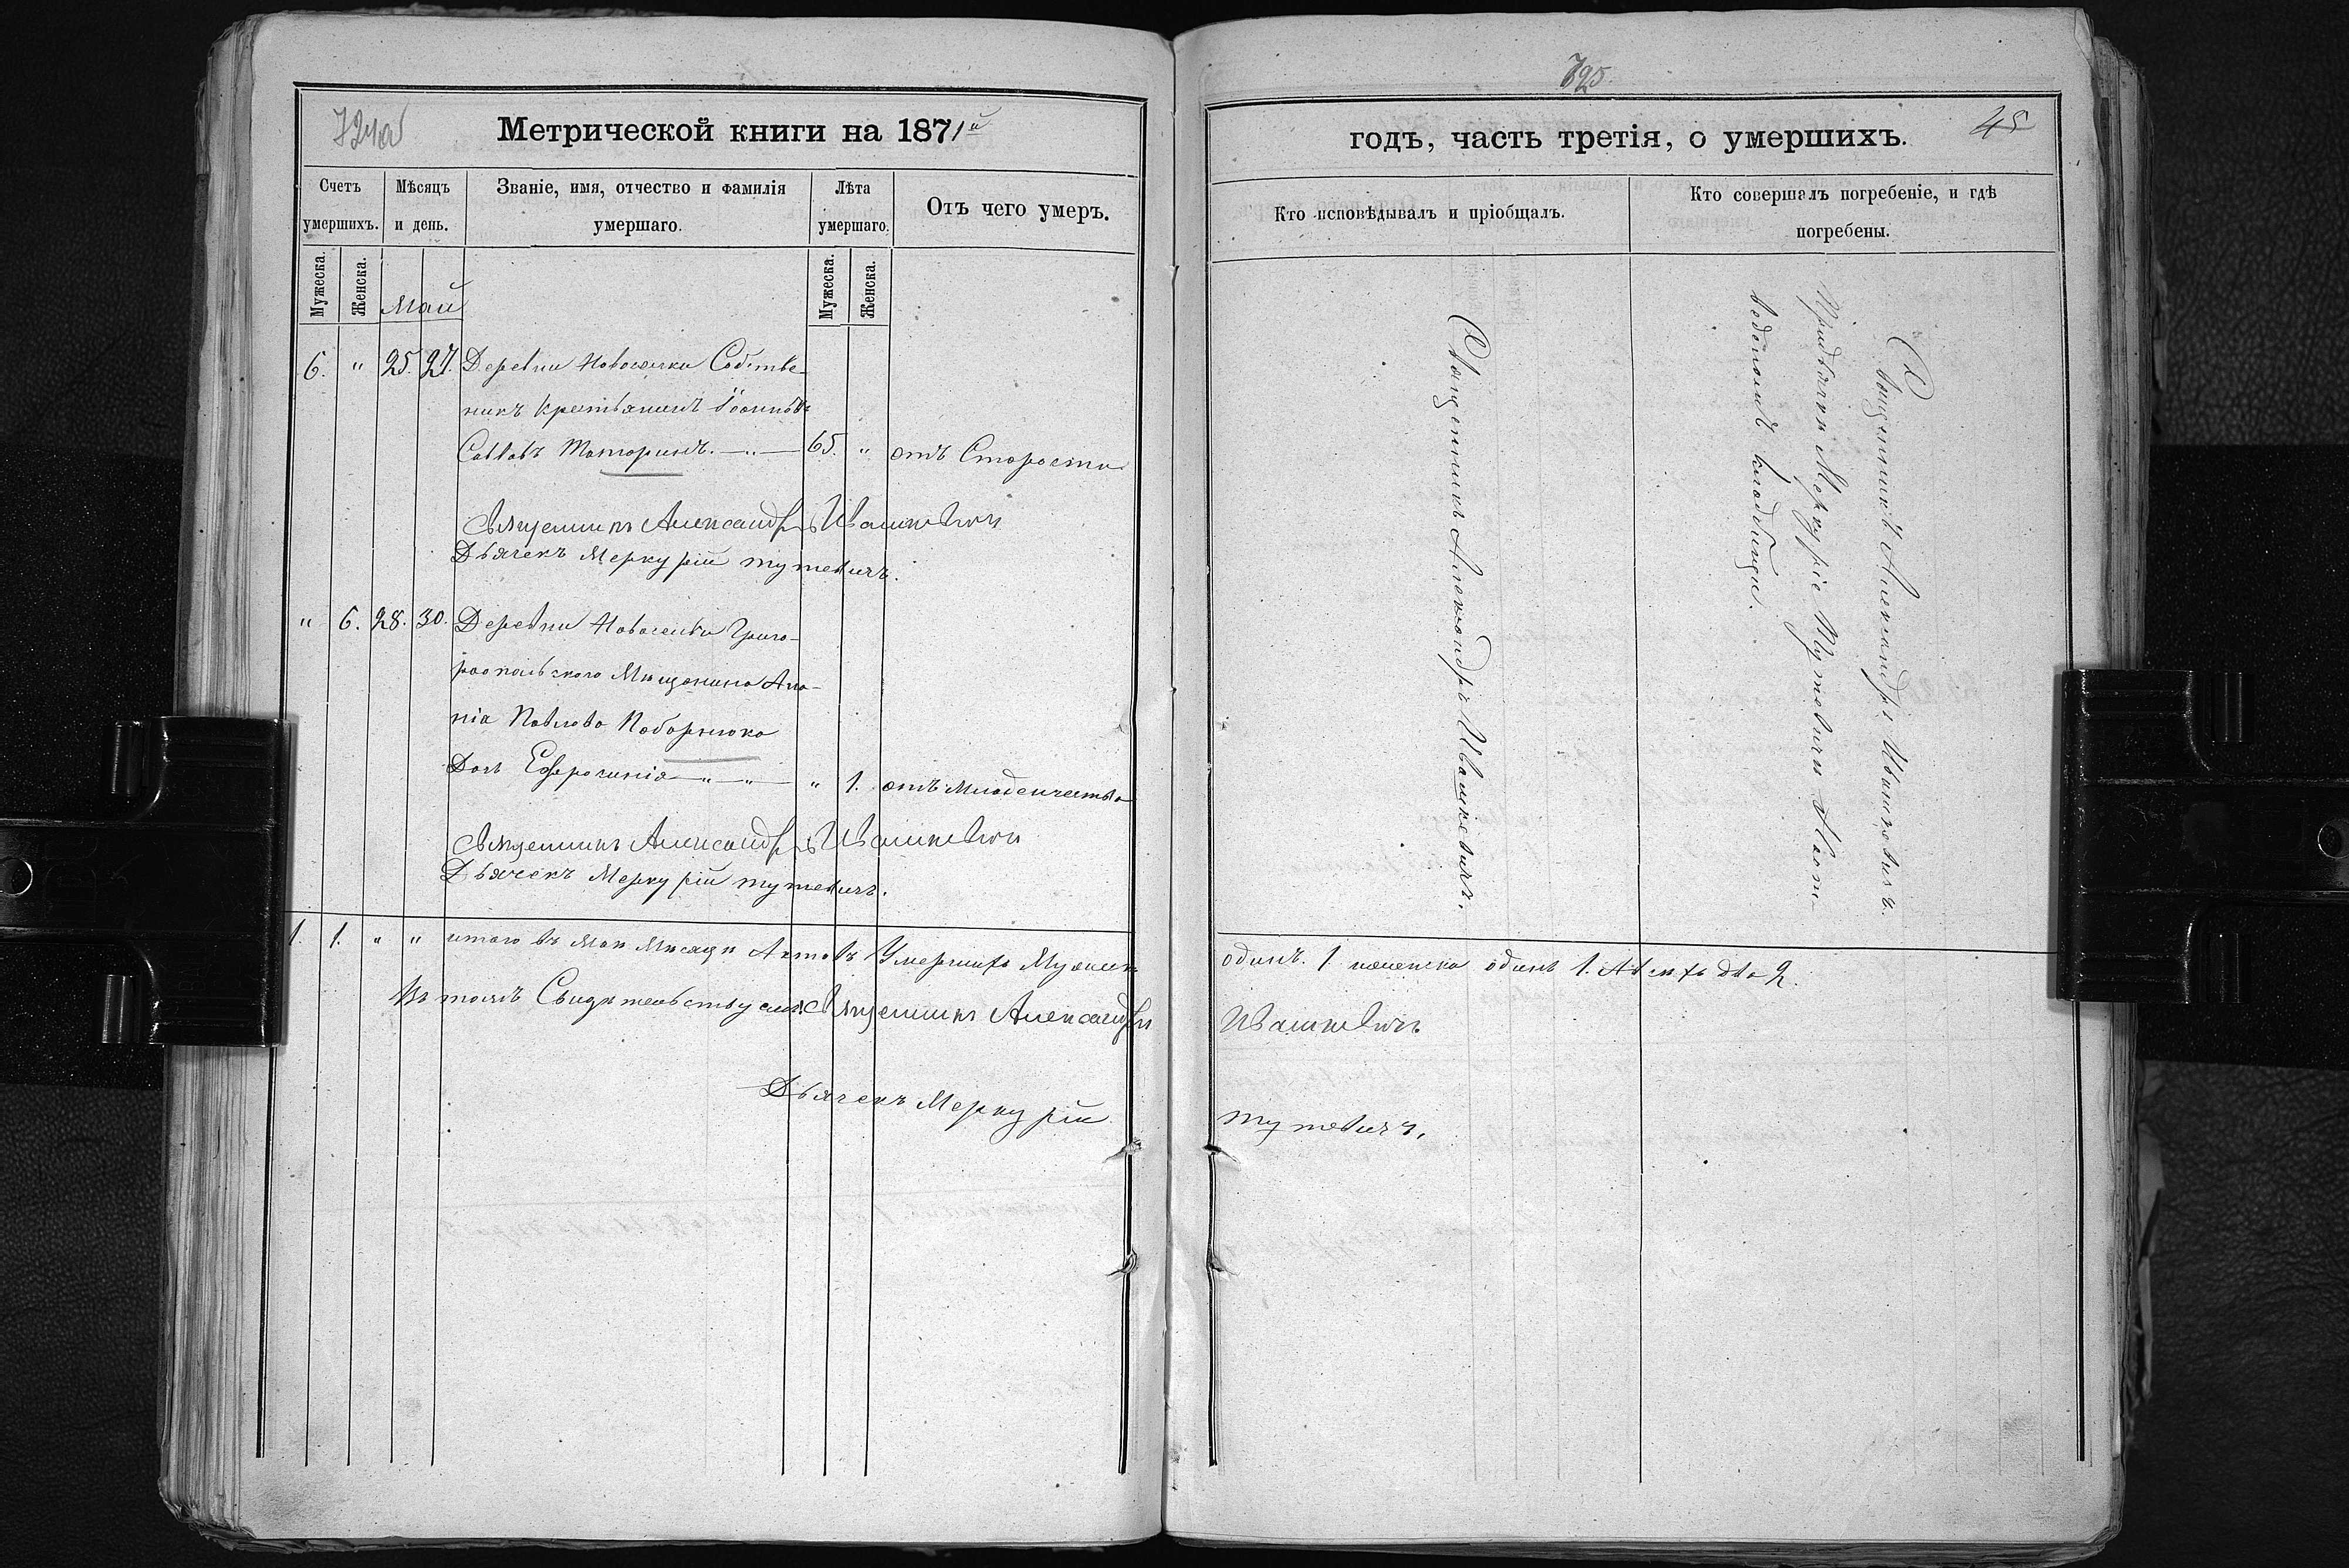 724об
Метрической книги на 1871й
Счетъ умершихъ.
Мѣсяцъ и день.
Званіе, имя, отчество и фамилія умершаго.
Лѣта умершаго.
Отъ чего умеръ.
Мужеска.
Женска.
Май
Мужеска.
Женска.
6. " 25. 27. Деревни Новоселки Собстве-
никъ Крестьянинъ Іоаннъ
Саввовъ 65. " отъ Старости
Священникъ Александръ Ивашкевичъ
Дьячекъ Меркурій Тутевичъ.
" 6. 28. 30. Деревни Новоселки Григо-
ріопольскаго Мѣщанина Ана-
нія Павлова
Дочь Евфросинія " " " 1. отъ младенчества
Священникъ Александръ Ивашкевичъ
Дьячекъ Меркурій Тутевичъ.
1. 1. " " итого въ Маи Мѣсяцѣ Актовъ Умершихъ Мужеск
Въ томъ Свидѣтельствуемъ: Священникъ Александръ
Дьячекъ Меркурій
725.
45
годъ, часть третія, о умершихъ.
Кто исповѣдывалъ и пріобщалъ.
Кто совершалъ погребеніе, и гдѣ погребены.
Священникъ Александръ Ивашкевичъ.
Священникъ Александръ Ивашкевичъ.
При дьячкѣ Меркуріе Тутевичи
кладбищи.
одинъ. 1 женска одинъ 1. двa 2.
Ивашкевичъ
Тутевичъ,